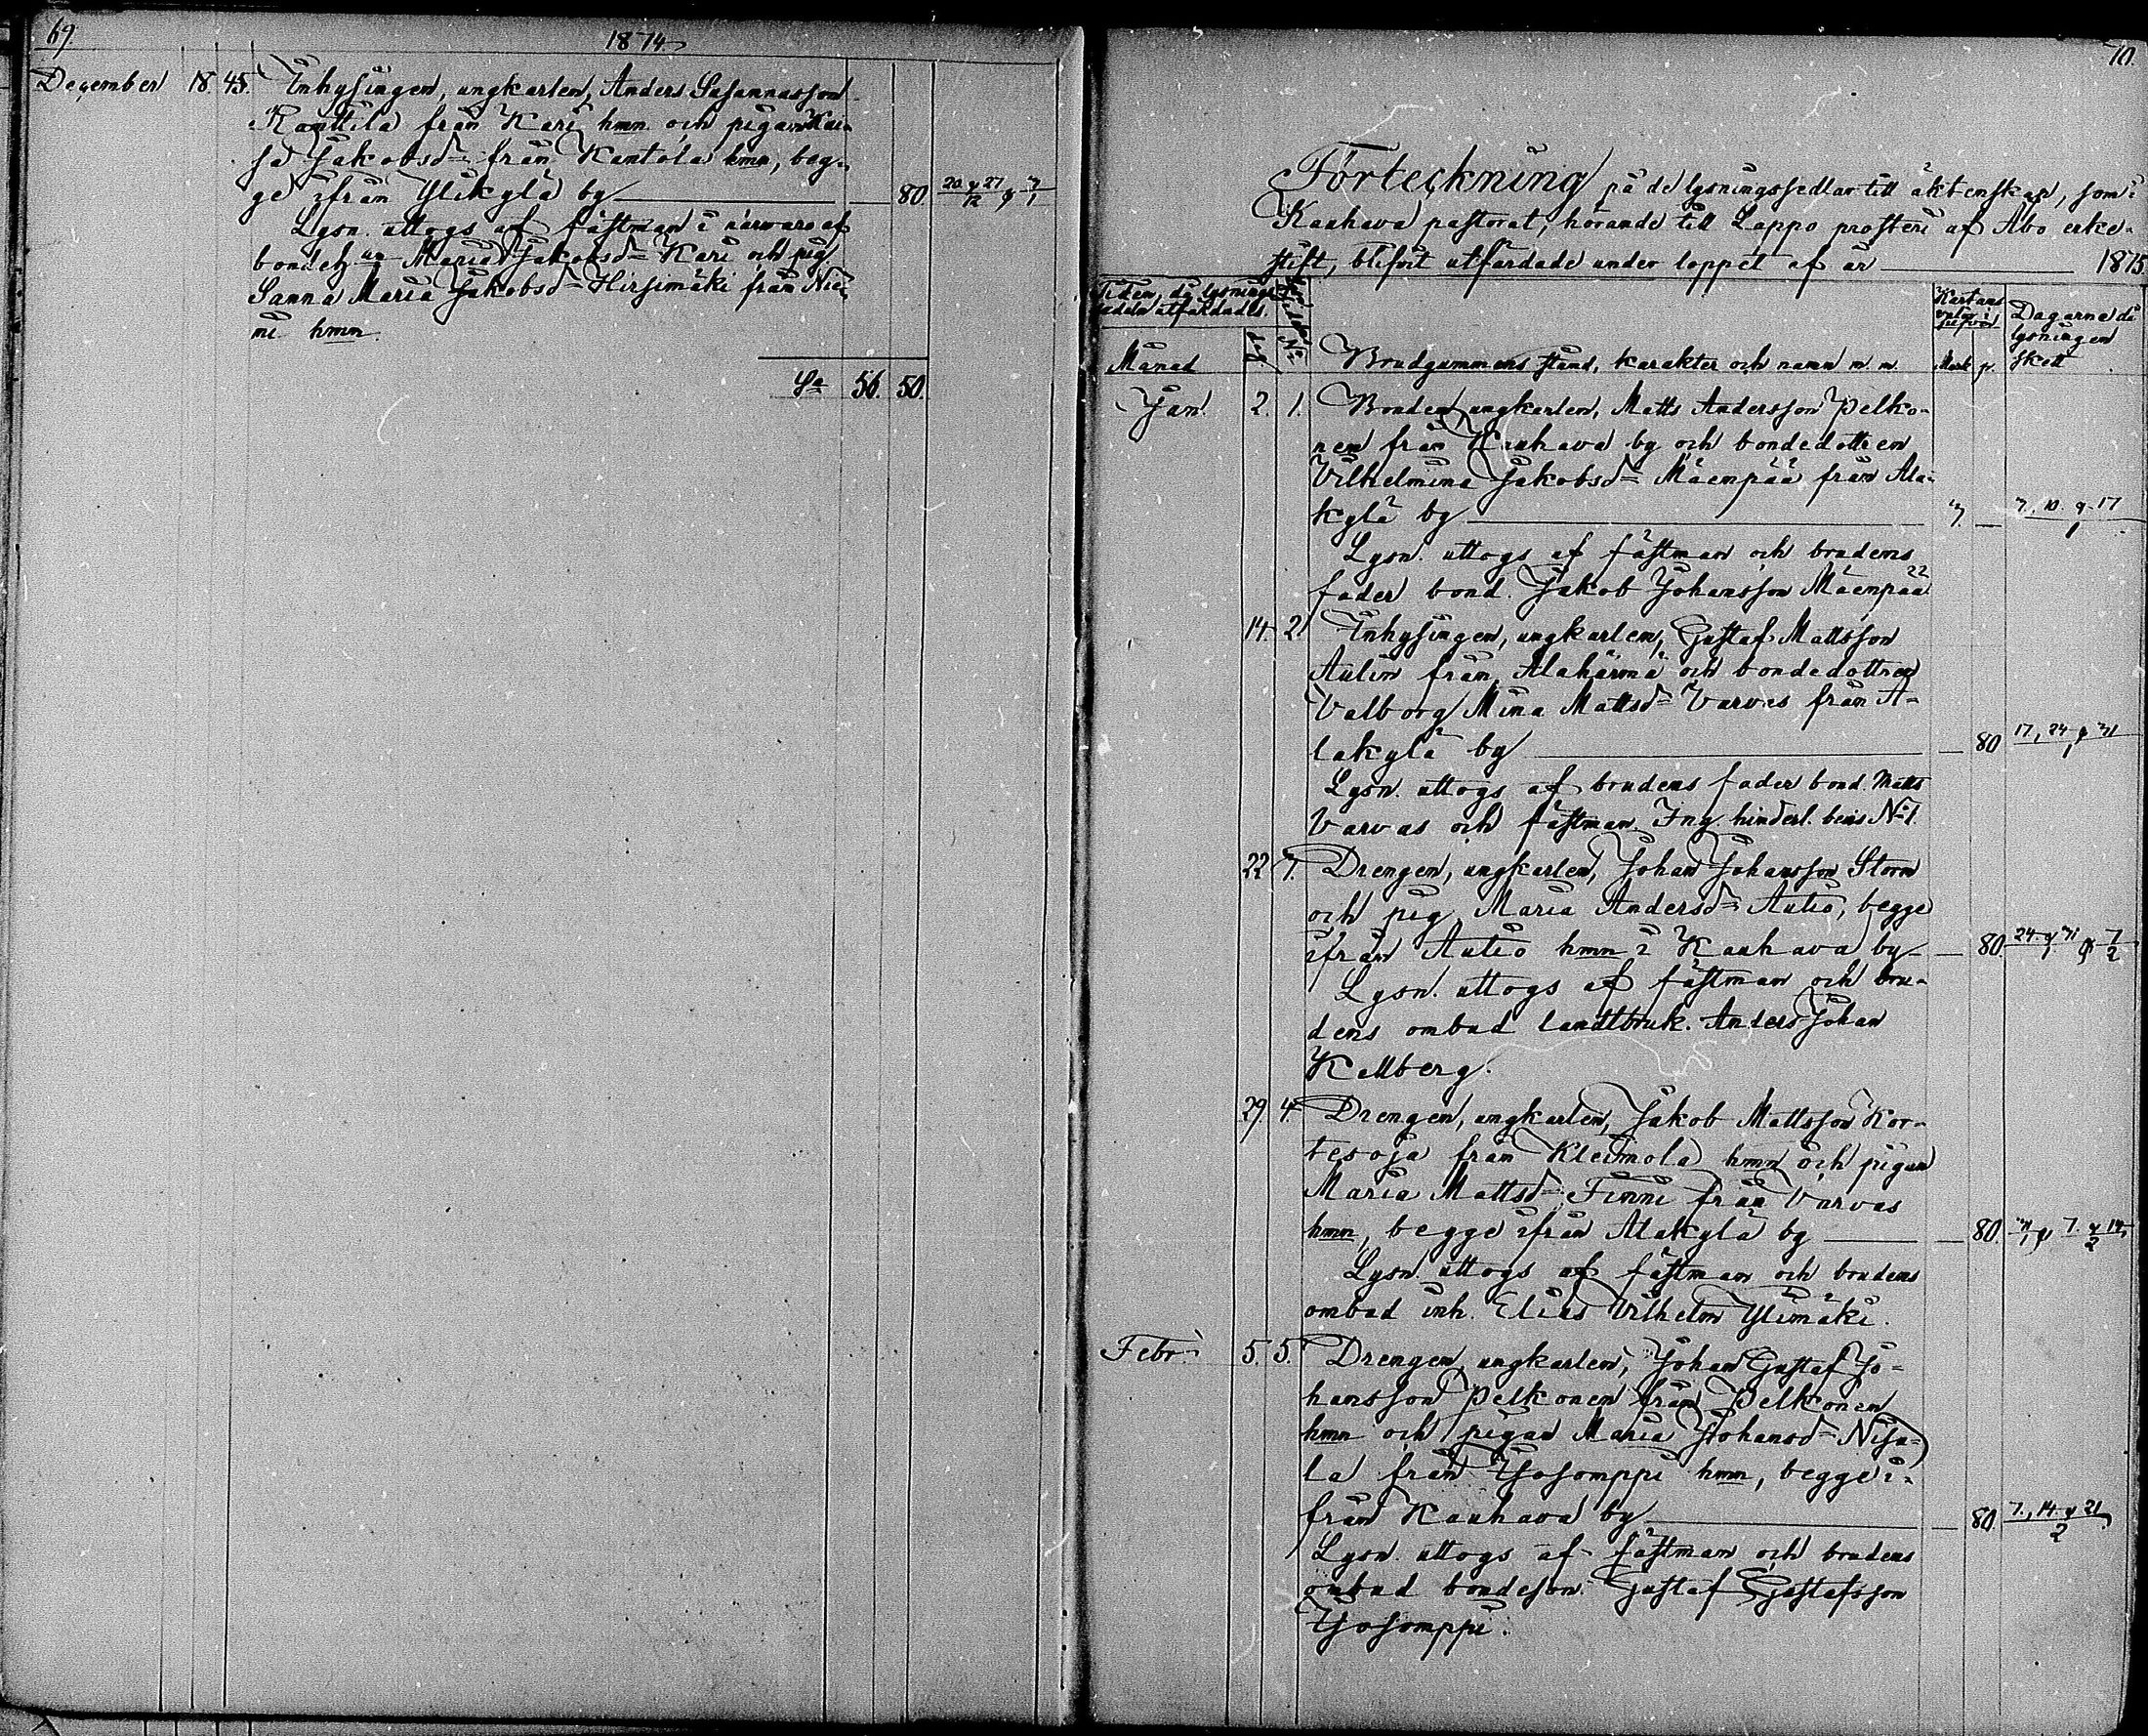 69.
1874
December 18. 45. Inhysingen, ungkarlen, Anders Susannasson
Ranttila från Kari hmn. och pigan Kai-
sa Jakobsd= från Kantola hmn, beg-
ge ifrån Ylikylä by — 80. 20 & 27/12 & 3/1
Lysn. uttogs af fästman i närvaro af
Maria Jakobsd= Kari och pig.
Sanna Maria Jakobsd= Hirsimäki från Nie-
mi hmn.
Sa 56. 50.
70.
Förteckning på de lysningssedlar till äktenskap, som i
Kauhava pastorat, hörande till Lappo prosteri af Åbo erke-
stift, blifvit utfärdade under loppet af år 1875
Tiden, då lysnings
sedeln utfärdades.
Månad
Dag
No
Brudgummens stånd, karakter och namn m. m.
Kartans
Mark p.
Dagarne då
lysningen
skett
Jan. 2. 1. Bonden, ungkarlen, Matts Andersson Pelko-
nen från Kauhava by och bondedottren
Vilhelmina Jakobsd= Mäenpää från Ala-
kylä by — 3. — 3., 10. & 17/1
Lysn. uttogs af fästman och brudens
fader bond. Jakob Johansson Mäenpää
14. 2. Inhysingen, ungkarlen, Gustaf Mattsson
Aulin från Alahärmä och bondedottren
Valborg Mina Mattsd= Varvas från A-
lakylä by — 80 17, 24 & 31/1
Lysn. uttogs af brudens fader bond. Matts
Varvas och fästman. Ing. hinderl. bevis No 1.
22 3. Drengen, ungkarlen, Johan Johansson Storm
och pig. Maria Andersd= Autio, begge
ifrån Autio hmn i Kauhava by — 80. 24. & 31/1 & 7/2
Lysn. uttogs af fästman och bru-
dens ombud landtbruk. Anders Johan
Kellberg.
29. 4. Drengen, ungkarlen, Jakob Mattsson Kor-
tesoja från Kleimola hmn och pigan
Maria Mattsd= Finni från Varvas
hmn, begge ifrån Alakylä by — 80. 31/1 & 7. & 14/2
Lysn. uttogs af fästman och brudens
ombud inh. Elias Vilhelm Ylimäki.
Febr. 5. 5. Drengen, ungkarlen, Johan Gustaf Jo-
hansson Pelkonen från Pelkonen
hmn och pigan Maria Johansd= Nisu-
la från Isosomppi hmn, begge i-
från Kauhava by — 80. 7., 14. & 21/2
Lysn. uttogs af fästman och brudens
ombud bondeson. Gustaf Gustafsson
Isosomppi.